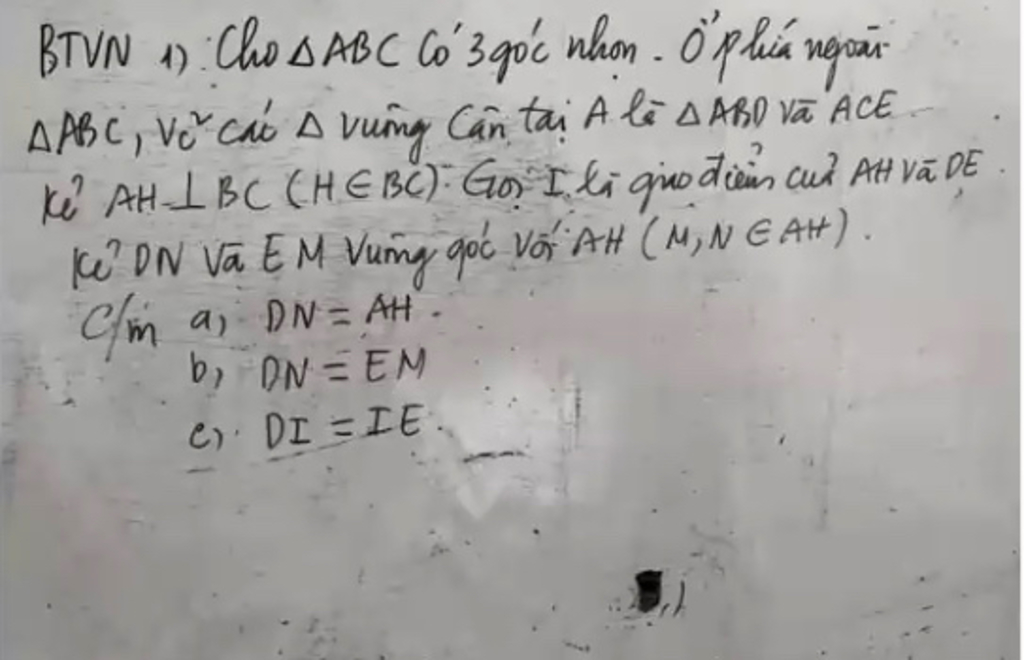 BTVN 1) : Cho △ABC Có 3 góc nhọn. Ở phiá ngoài
△ABC, Vẽ các △ vuông Cân tại A là △ABD và ACE
Kẻ AH ⊥ BC (H ∈ BC). Gọi I là giao điểm của AH và DE.
Kẻ DN Và EM Vuông góc Với AH (M, N ∈ AH).
C/m a, DN = AH.
b, DN = EM
c). DI = IE.